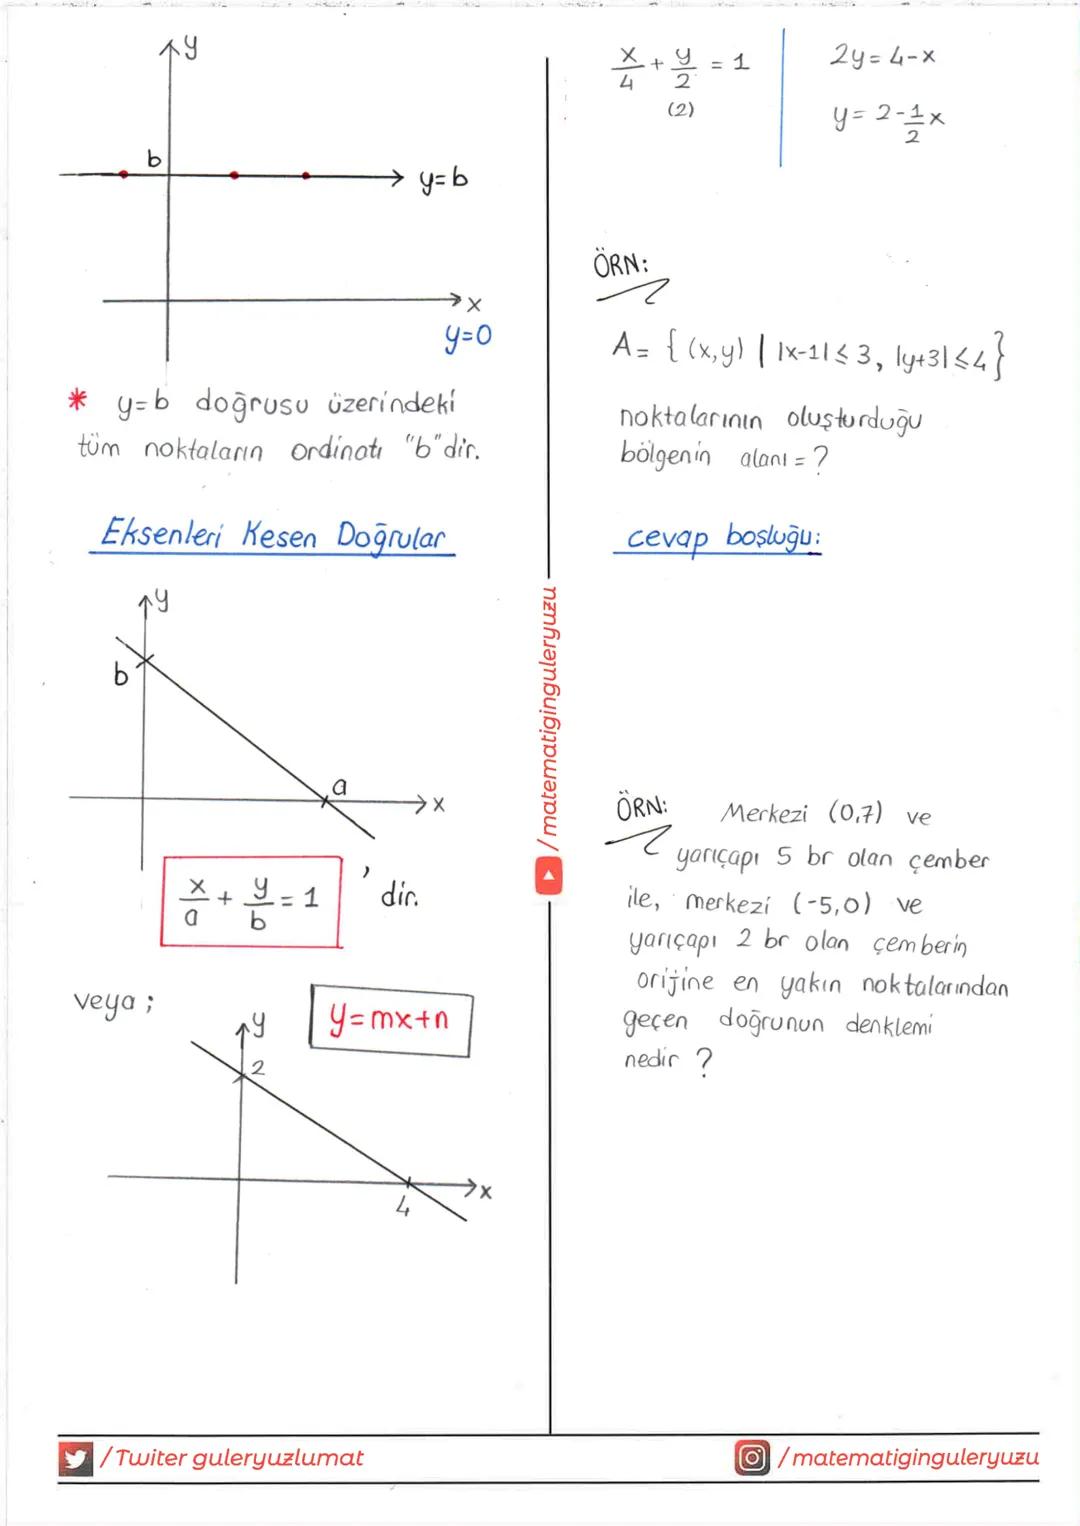 y
b
y=b
x
y=0
* y=b doğrusu üzerindeki
tüm noktaların ordinatı "b"dir.
Eksenleri Kesen Doğrular
y
b
a
x
x/a + y/b = 1 ' dir.
veya ;
y=mx+n
y
2
4
x
x/4 + y/2 = 1
(2)
2y=4-x
y= 2-1/2x
ÖRN:
A= { (x,y) | |x-1|≤3, |y+3|≤4}
noktalarının oluşturduğu
bölgenin alanı = ?
cevap boşluğu:
ÖRN: Merkezi (0,7) ve
yarıçapı 5 br olan çember
ile, merkezi (-5,0) ve
yarıçapı 2 br olan çemberin
orijine en yakın noktalarından
geçen doğrunun denklemi
nedir ?
/matematiginguleryuzu
/Twiter guleryuzlumat
/matematiginguleryuzu